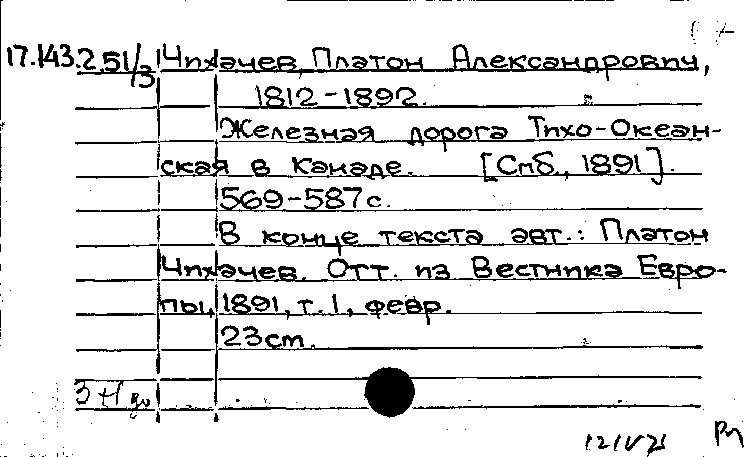 17.143.2.51/3 Чихачев, Платон Александрович,
1812-1892.
Железная дорога Тихо-Океан-
ская в Канаде. [Спб., 1891].
569-587 с.
В конце текста авт.: Платон
Чихачев. Отт. из Вестника Евро-
пы, 1891, т. 1, февр.
23 cm.